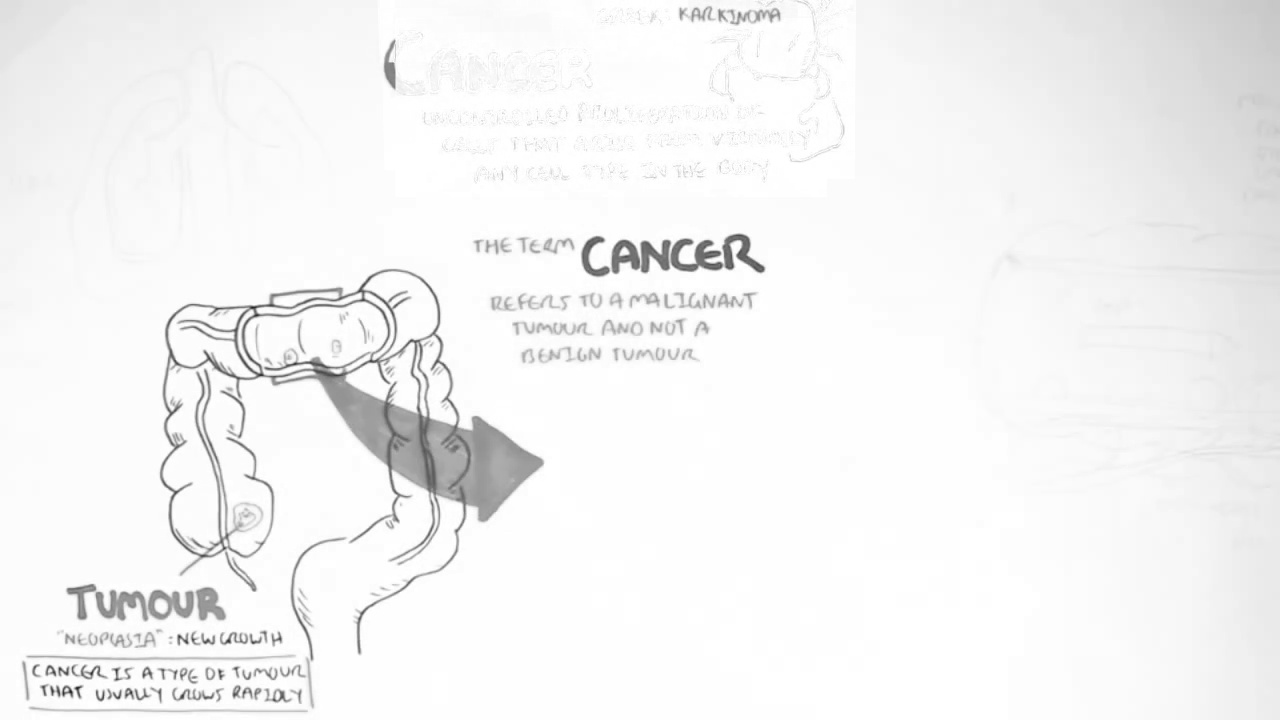 GREEK: KARKINOMA
CANCER
UNCONTROLLED PROLIFERATION OF
CELLS THAT ARISE FROM VIRTUALLY
ANY CELL TYPE IN THE BODY
THE TERM CANCER
REFERS TO A MALIGNANT
TUMOUR AND NOT A
BENIGN TUMOUR
TUMOUR
"NEOPLASIA" : NEW GROWTH
CANCER IS A TYPE OF TUMOUR
THAT USUALLY GROWS RAPIDLY